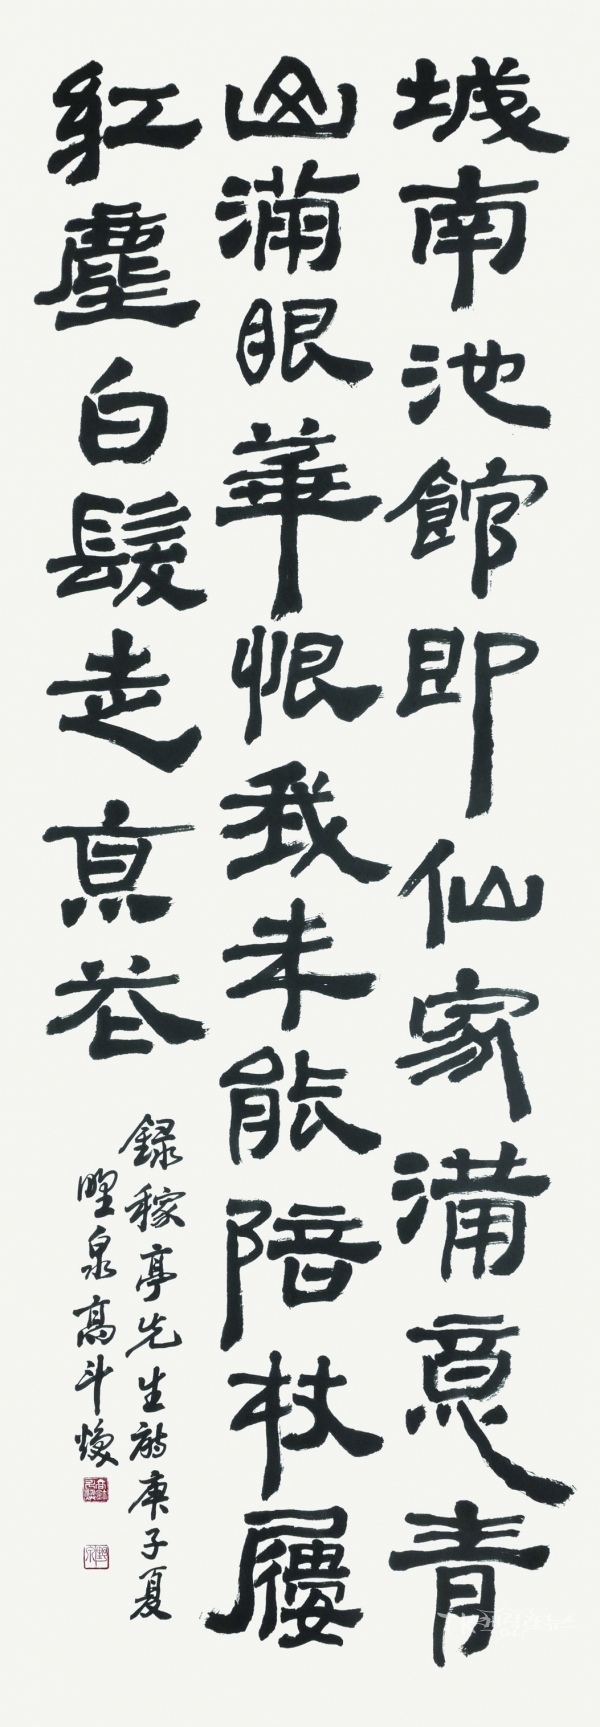 城南池館即仙家滿意青
山滿眼華恨我未能陪杖屨
紅塵白髮走京花
錄稼亭先生詩庚子夏
野泉高斗煥